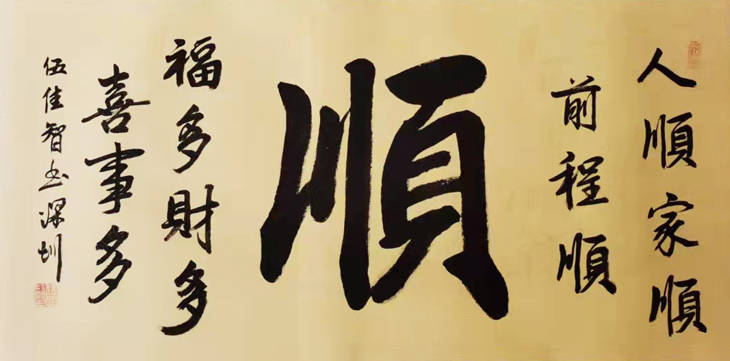 人順家順
前程順
順
福多財多
喜事多
伍佳智书深圳